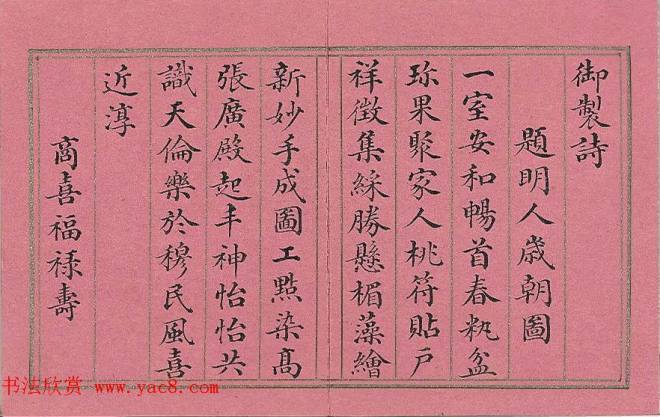 御製詩
題明人歲朝圖
一室安和暢首春瓡盆
珎果聚家人桃符貼戶
祥徵集綵勝懸楣藻繪
新妙手成圖工點染髙
張廣殿起丰神怡怡共
識天倫樂於穆民風喜
近淳
商喜福禄壽
书法欣赏 www.yac8.com